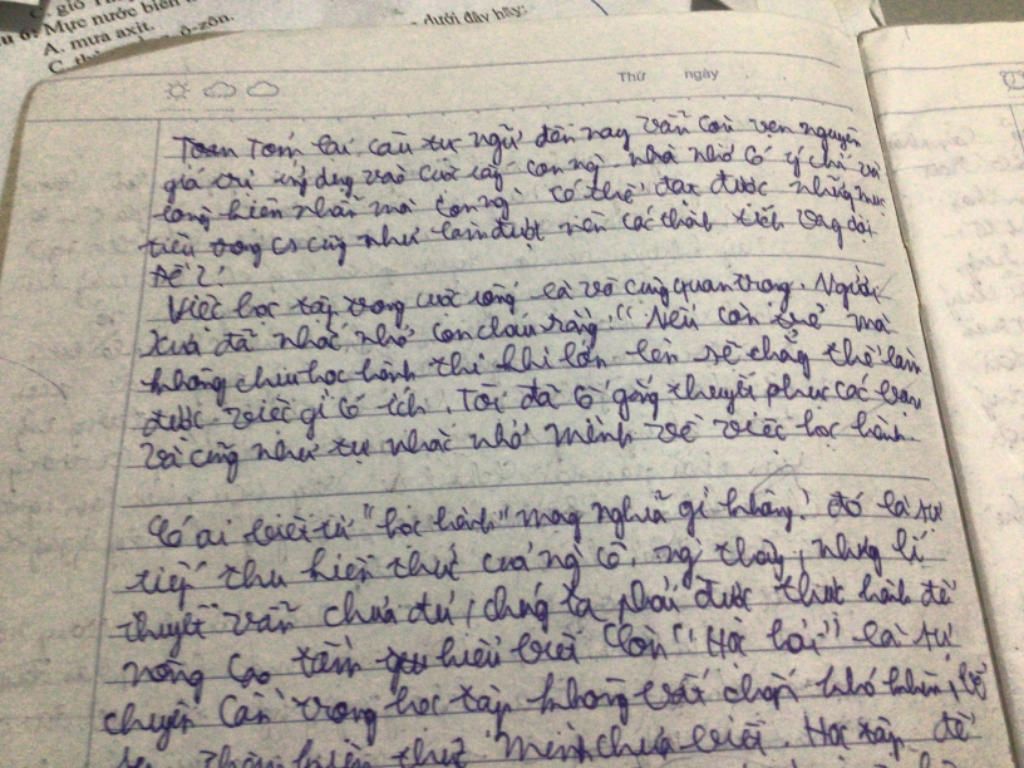 C. gió
Mực nước biển
A. mưa axit.
ô-zôn.
dưới đây hãy:
Thứ ngày
Tóm lại, câu tục ngữ đến nay vẫn còn vẹn nguyên
giá trị ứng dụng vào cuộc sống con ng nhà nhờ có ý chí và
lòng kiên nhẫn mà con ng có thể đạt được những mục
tiêu trong cs cũng như làm được nên các thành
Đề 2:
Việc học tập trong cuộc sống là vô cùng quan trọng. Người
xưa đã nhắc nhở con cháu rằng: "Nếu còn trẻ mà
không chịu học hành thì khi lớn lên sẽ chẳng thể làm
được việc gì có ích. Tôi đã cố gắng thuyết phục các bạn
và cũng như tự nhắc nhở mình về việc học hành.
Có ai biết từ "học hành" mang nghĩa gì không? đó là sự
tiếp thu kiến thức của ng cô, ng thầy, nhưng lí
thuyết vẫn chưa đủ, chúng ta phải được thực hành để
nâng cao tầm hiểu biết Còn "Học hỏi" là sự
chuyên cần trong học tập không khó khăn,
kiến thức mình chưa biết. Học tập để